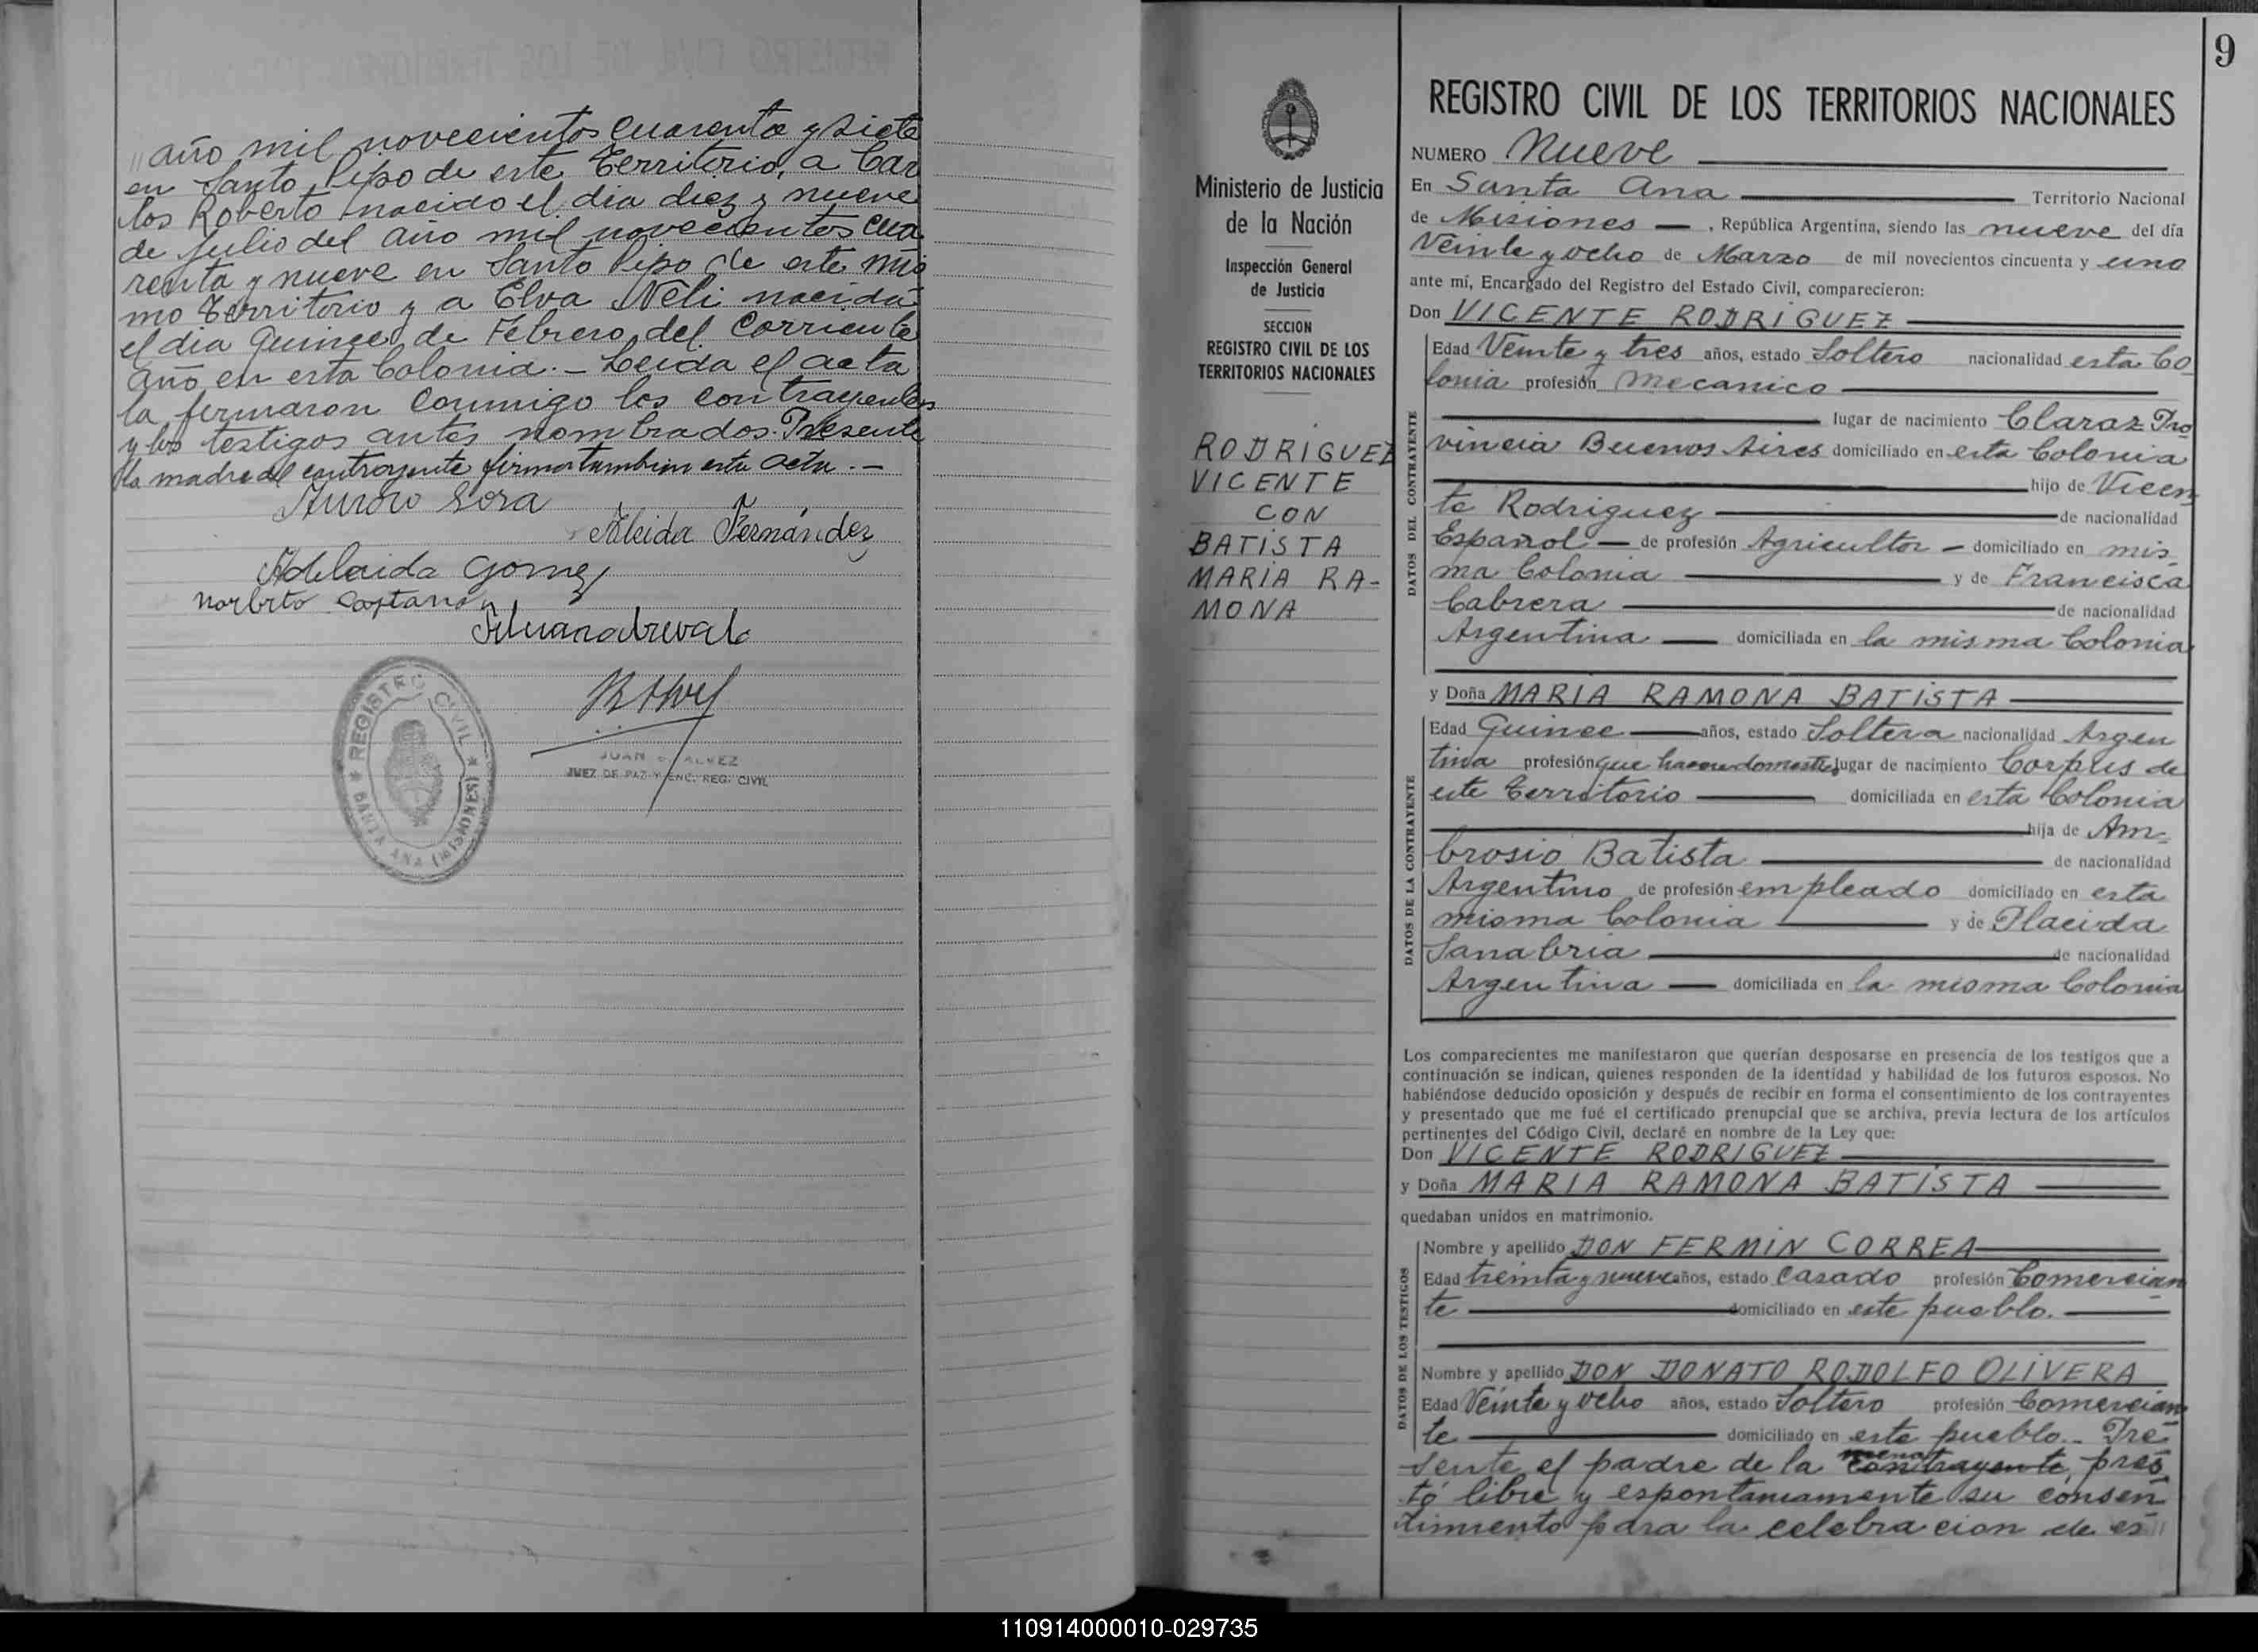 año mil novecientos cuarenta y siete
en Santo Pipo de este Territorio, a Car
los Roberto nacido el dia diez y nueve
de julio del año mil novecientos cua
renta y nueve en Santo Pipo de este mis
mo Territorio y a Elva Neli nacida
el dia Quince de Febrero del Corriente
año en esta Colonia.- Leida el acta
la firmaron conmigo los contrayentes
y los testigos antes nombrados. Presente
la madre del contrayente firma tambien esta acta.-
Arturo Sosa
Aleida Fernández
Adelaida Gomez
Norberto
REGISTRO CIVIL
SANTA ANA (MISIONES)
JUAN
JUEZ DE PAZ Y ENC. REG. CIVIL
9
Ministerio de Justicia
de la Nación
Inspección General
de Justicia
SECCION
REGISTRO CIVIL DE LOS
TERRITORIOS NACIONALES
RODRIGUEZ
VICENTE
CON
BATISTA
MARIA RA-
MONA
REGISTRO CIVIL DE LOS TERRITORIOS NACIONALES
NUMERO Nueve
En Santa Ana Territorio Nacional
de Misiones, República Argentina, siendo las nueve del día
Veinte y ocho de Marzo de mil novecientos cincuenta y uno
ante mí, Encargado del Registro del Estado Civil, comparecieron:
Don VICENTE RODRIGUEZ
DATOS DEL CONTRAYENTE
Edad Veinte y tres años, estado Soltero nacionalidad esta Co
lonia profesión mecanico
lugar de nacimiento Claraz Pro
vincia Buenos Aires domiciliado en esta Colonia
hijo de Vicen
te Rodriguez de nacionalidad
Español de profesión Agricultor domiciliado en mis
ma Colonia y de Francisca
Cabrera de nacionalidad
Argentina domiciliada en la misma Colonia
y Doña MARIA RAMONA BATISTA
DATOS DE LA CONTRAYENTE
Edad Quince años, estado Soltera nacionalidad Argen
tina profesión que lugar de nacimiento Corpus de
este Territorio domiciliada en esta Colonia
hija de Am-
brosio Batista de nacionalidad
Argentino de profesión empleado domiciliado en esta
misma Colonia y de Placida
Sanabria de nacionalidad
Argentina domiciliada en la misma Colonia
Los comparecientes me manifestaron que querían desposarse en presencia de los testigos que a
continuación se indican, quienes responden de la identidad y habilidad de los futuros esposos. No
habiéndose deducido oposición y después de recibir en forma el consentimiento de los contrayentes
y presentado que me fué el certificado prenupcial que se archiva, previa lectura de los artículos
pertinentes del Código Civil, declaré en nombre de la Ley que:
Don VICENTE RODRIGUEZ
y Doña MARIA RAMONA BATISTA
quedaban unidos en matrimonio.
DATOS DE LOS TESTIGOS
Nombre y apellido DON FERMIN CORREA
Edad treinta y nueve años, estado Casado profesión Comercian
te domiciliado en este pueblo.
Nombre y apellido DON DONATO RODOLFO OLIVERA
Edad Veinte y ocho años, estado Soltero profesión Comercian
te domiciliado en este pueblo.- Pre
sente el padre de la contrayente, pres
tó libre y espontaneamente su consen
timiento para la celebracion de es
110914000010-029735